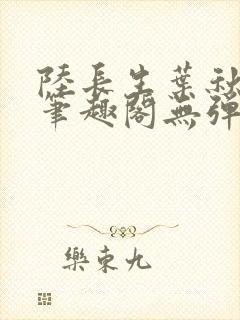 陸長生葉秋
筆趣閣無彈
樂東九